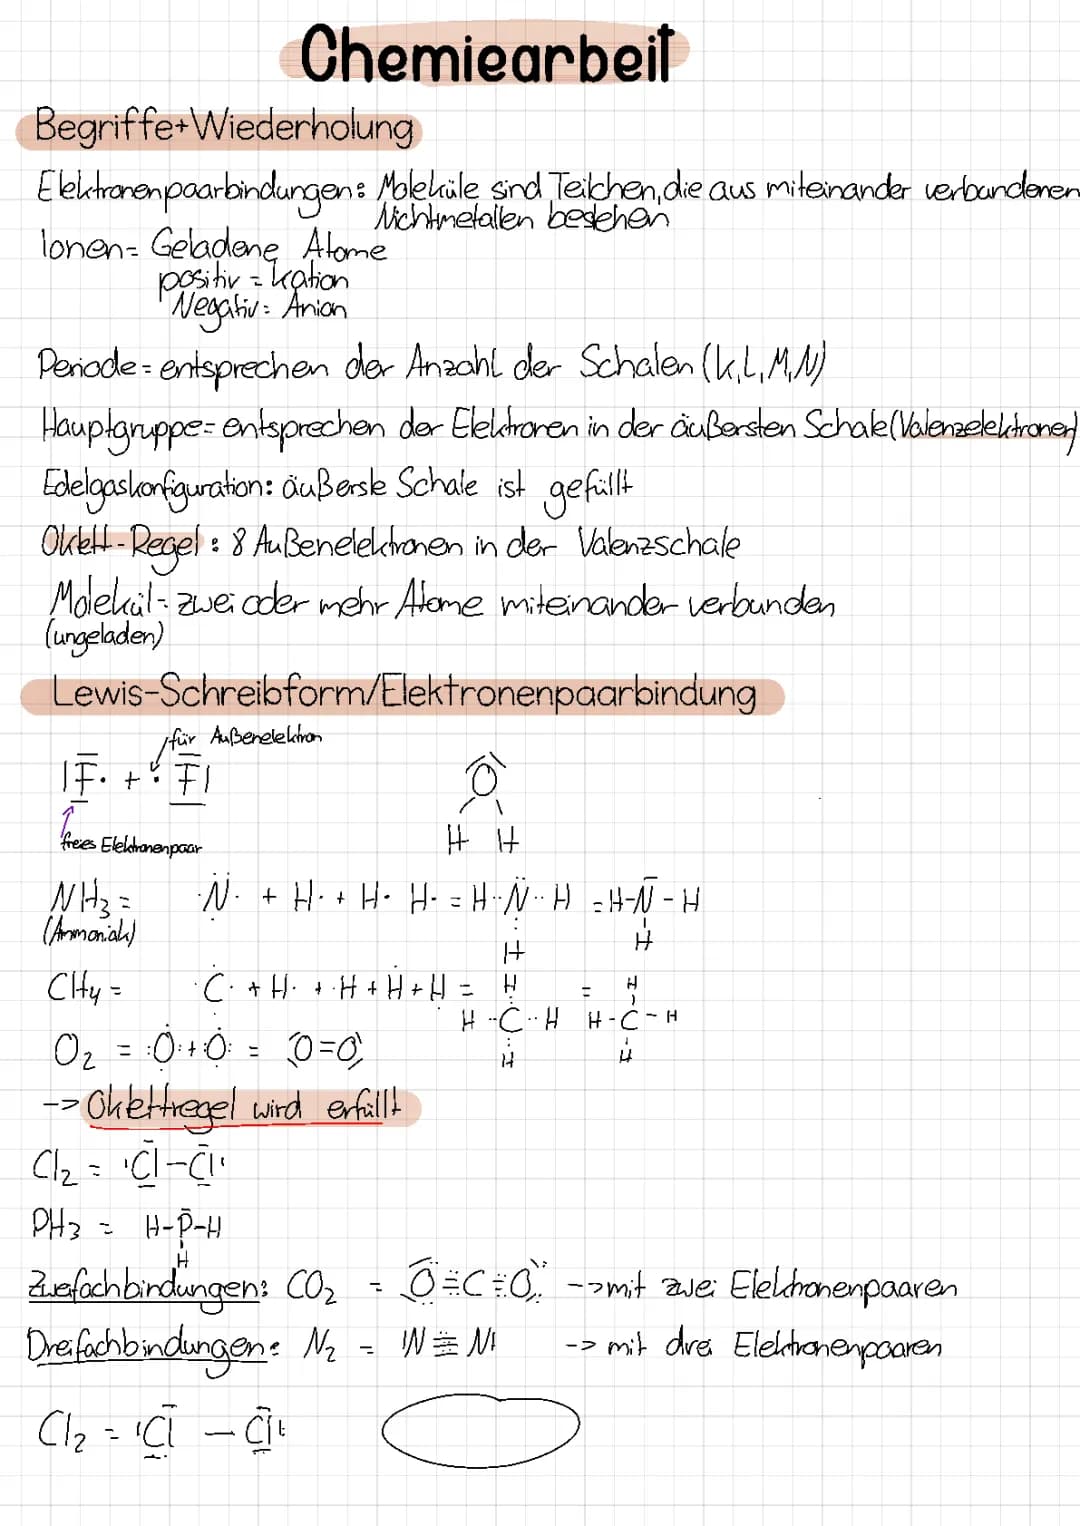 Chemiearbeit
Begriffe+Wiederholung
Elektronenpaarbindungen: Moleküle sind Teilchen, die aus miteinander verbundenen
Nichtmetallen bestehen
Ionen= Geladene Atome
positiv = kation
Negativ: Anion
Periode = entsprechen der Anzahl der Schalen (K,L,M,N)
Hauptgruppe= entsprechen der Elektronen in der äußersten Schale (Valenzelektronen)
Edelgaskonfiguration: äußerste Schale ist gefüllt
Oktett-Regel: 8 Außenelektronen in der Valenzschale
Molekül- zwei oder mehr Atome miteinander verbunden
(ungeladen)
Lewis-Schreibform/Elektronenpaarbindung
für Außenelektron
|F· + ·F|
freies Elektronenpaar
O
H H
NH3 = ·N· + H· + H· H· = H··N··H = H-N-H
(Ammoniak)
H H
CH4 = ·C· + H· + ·H + H + H = H = H
H··C··H H-C-H
H H
O2 = :O: + O: = O=O
-> Oktettregel wird erfüllt
Cl2 = Cl-Cl
PH3 = H-P-H
H
Zweifachbindungen: CO2 = O=C=O -> mit zwei Elektronenpaaren
Dreifachbindungen: N2 = |N≡N| -> mit drei Elektronenpaaren
Cl2 = Cl - Cl